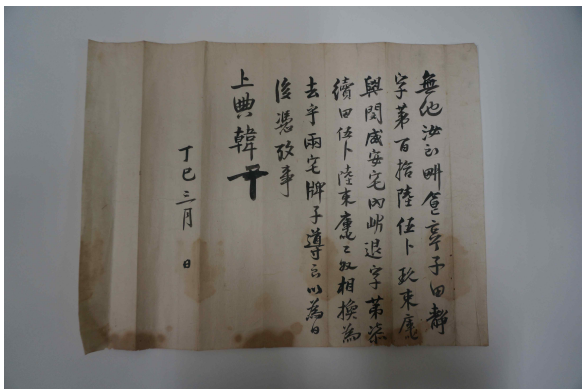 無他汝矣亭子田靜
字第百拾陸伍卜玖束庫
與閔咸安宅內退字第柒
續田伍卜陸束庫相換為
去乎兩宅牌子導良以為日
後憑攷事
上典韓
丁巳三月 日